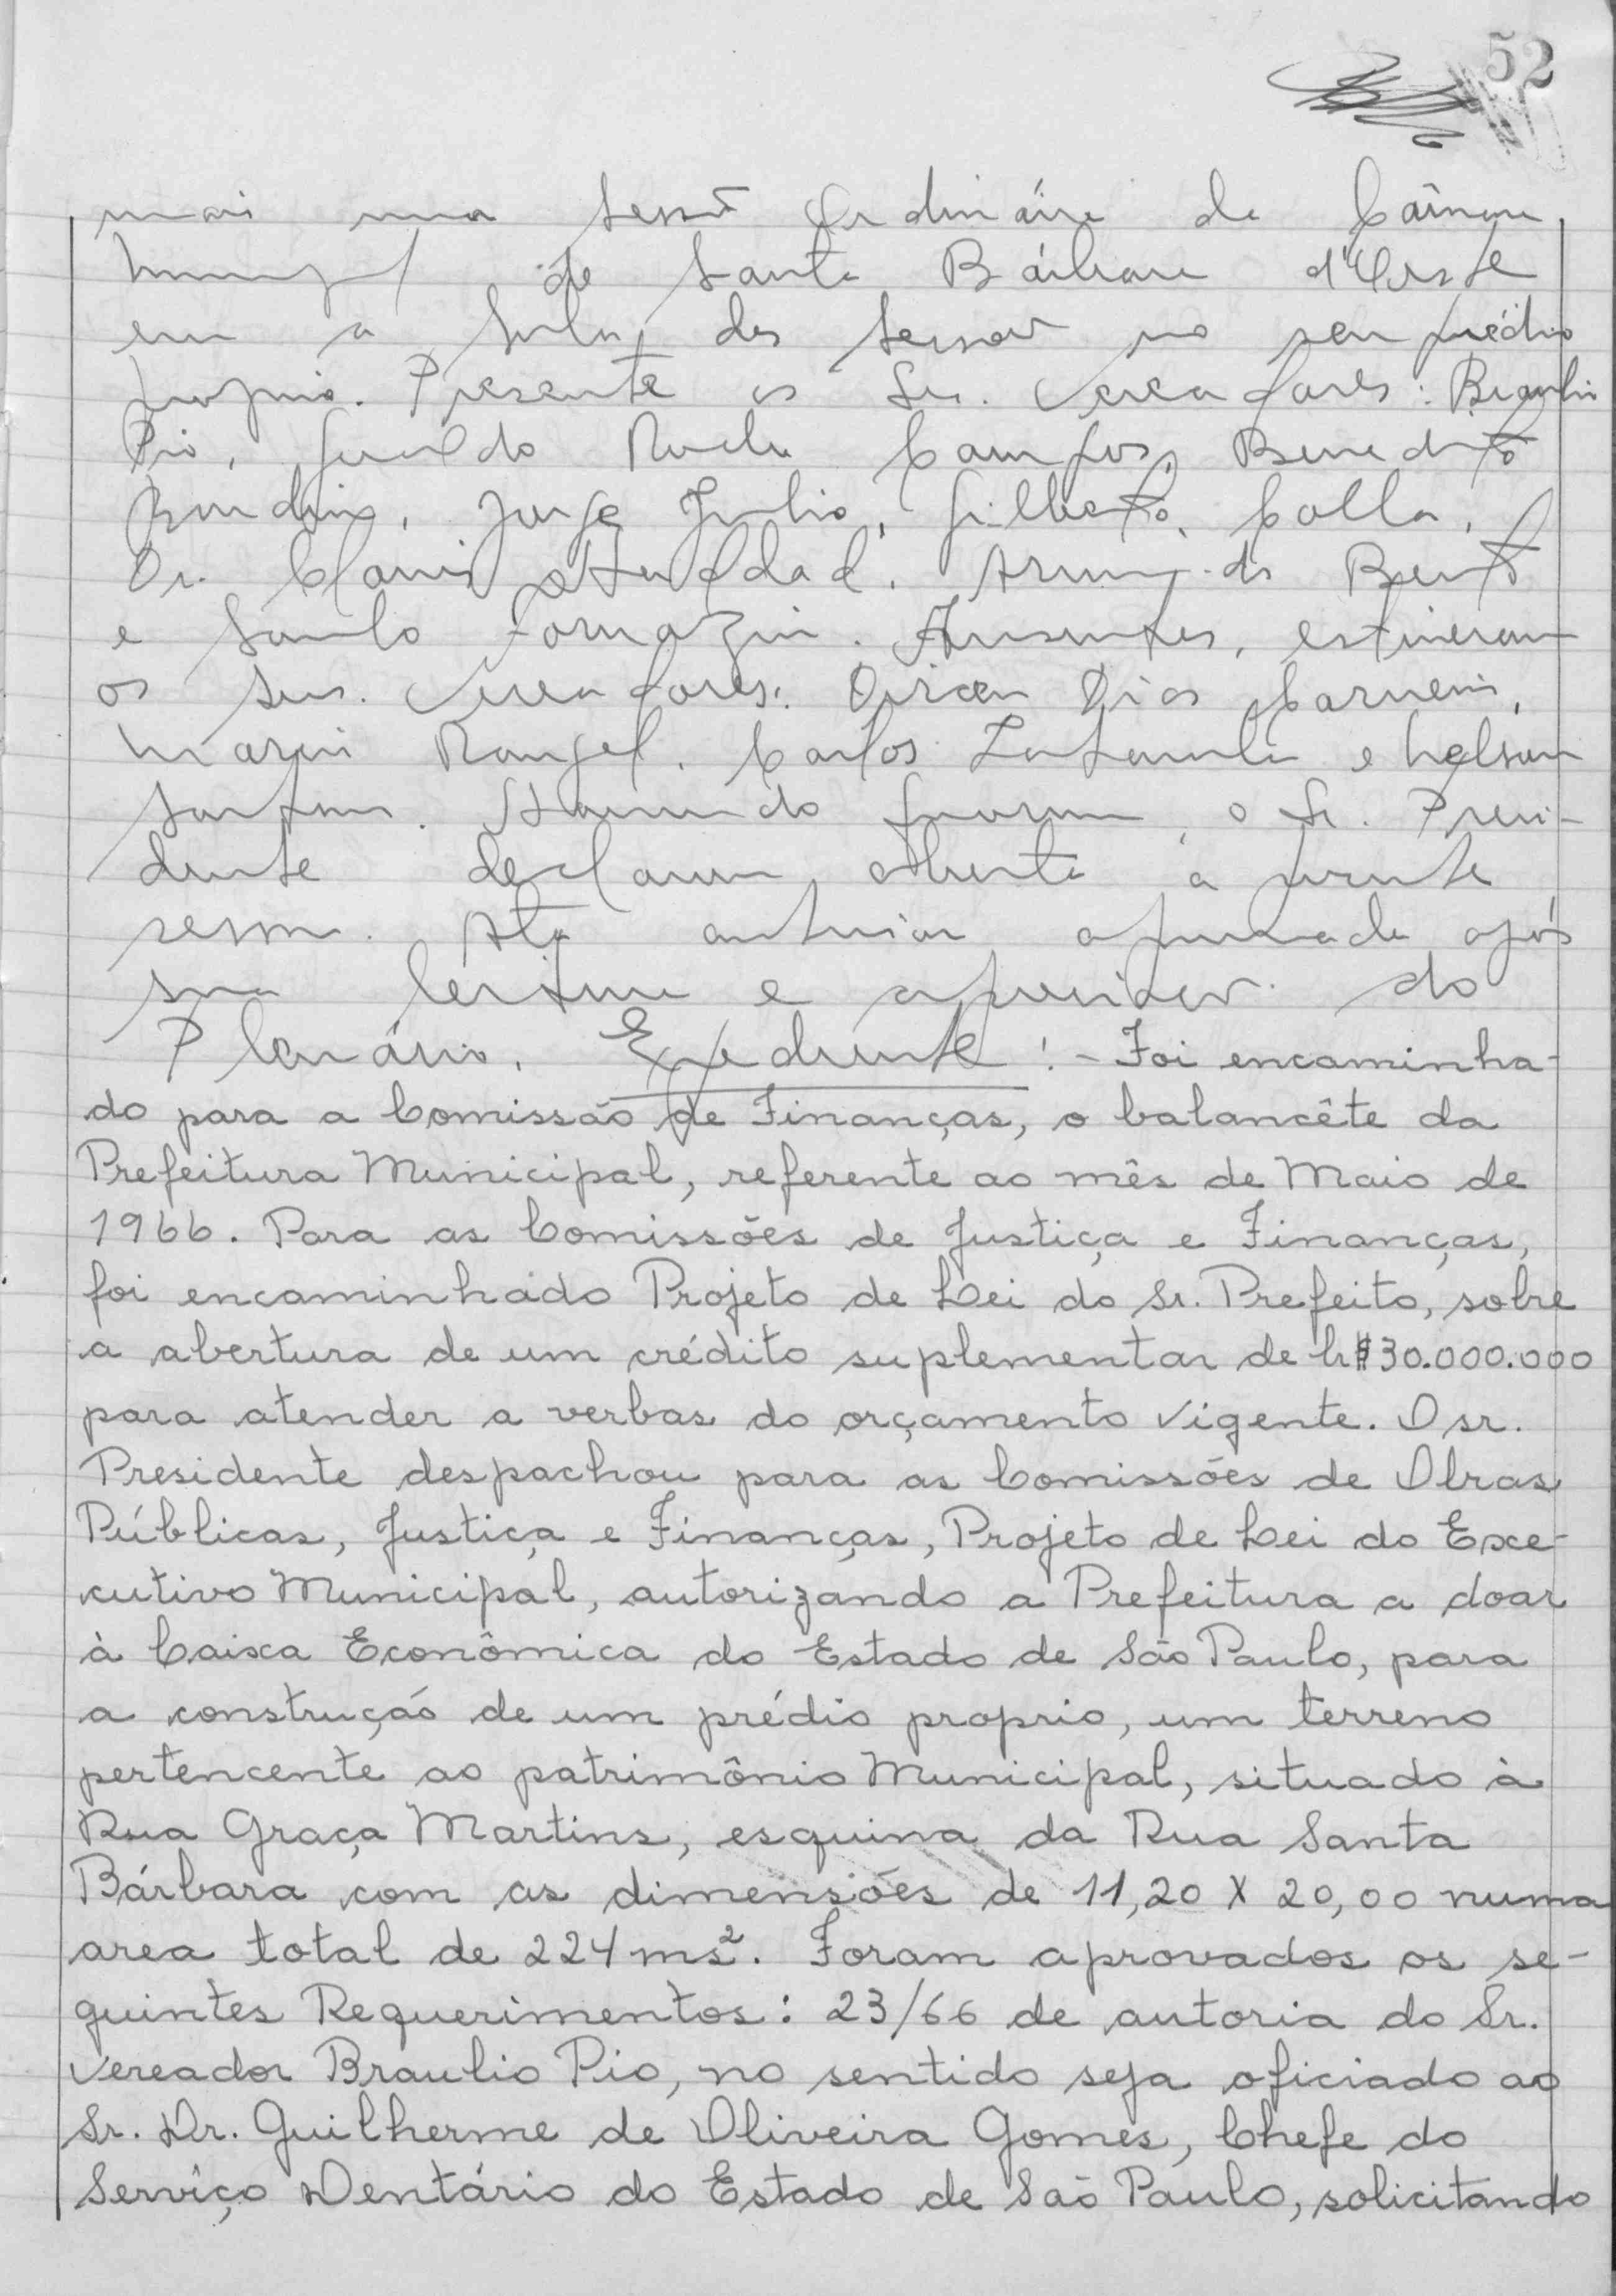 52
mais uma sessão Ordinária da Câmara
Municipal de Santa Bárbara d'Oeste
em a sala das sessões no seu prédio
proprio. Presente os Srs. Vereadores: Braulio
Pio, Geraldo Rocha Campos, Benedito
Jorge Julio, Gilberto Colla,
Dr. Clovis Armindo Bento
e Santo Fornazin. Ausentes, estiveram
os Srs. Vereadores: Dirceu Dias Carneiro,
Mario Rangel, Carlos e Nelson
Havendo quorum, o Sr. Presi-
dente declarou aberta a presente
sessão. Ata anterior aprovada após
sua leitura e apreciação do
Plenário. Expediente: - Foi encaminha-
do para a Comissão de Finanças, o balancête da
Prefeitura Municipal, referente ao mês de Maio de
1966. Para as Comissões de Justiça e Finanças,
foi encaminhado Projeto de Lei do Sr. Prefeito, sobre
a abertura de um crédito suplementar de Cr$30.000.000
para atender a verbas do orçamento vigente. O sr.
Presidente despachou para as Comissões de Obras
Públicas, Justiça e Finanças, Projeto de Lei do Exe-
cutivo Municipal, autorizando a Prefeitura a doar
à Caixa Econômica do Estado de São Paulo, para
a construção de um prédio proprio, um terreno
pertencente ao patrimônio Municipal, situado à
Rua Graça Martins, esquina da Rua Santa
Bárbara com as dimensões de 11,20 X 20,00 numa
area total de 224 ms². Foram aprovados os se-
guintes Requerimentos: 23/66 de autoria do Sr.
Vereador Braulio Pio, no sentido seja oficiado ao
Sr. Dr. Guilherme de Oliveira Gomes, Chefe do
Serviço Dentário do Estado de São Paulo, solicitando